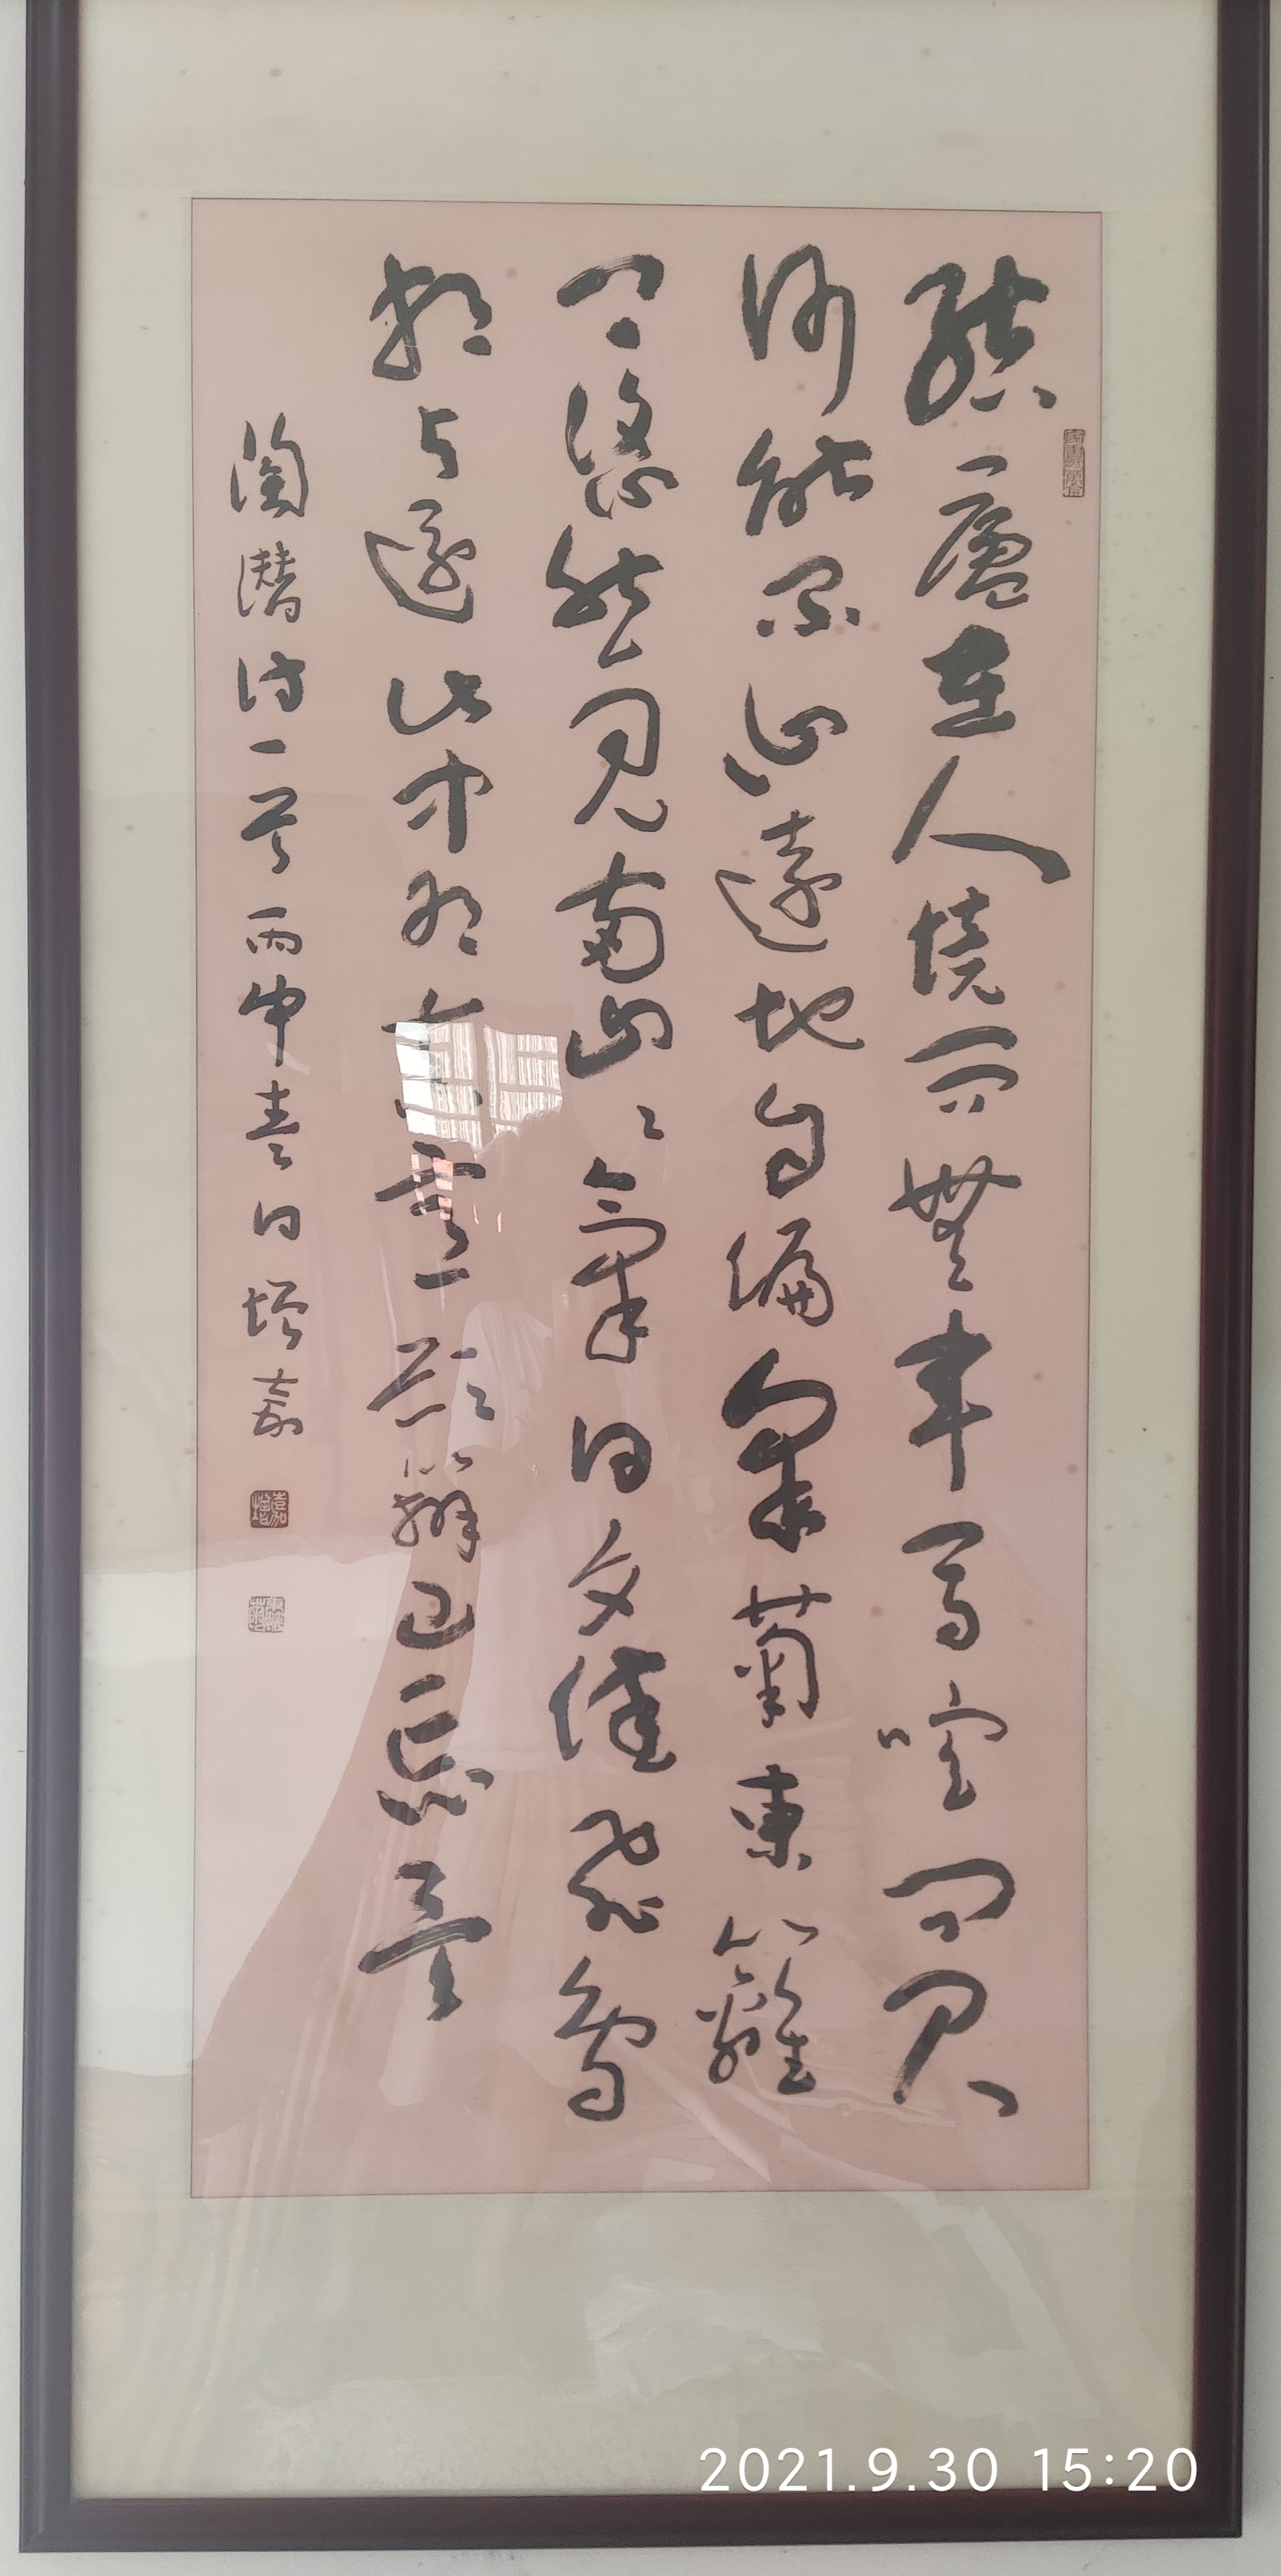 結廬在人境而無車馬喧問君
何能爾心遠地自偏采菊東籬
下悠然見南山〻氣日夕佳飛鳥
相與還此中有真意欲辨已忘言
陶潛詩一首丙申春日增嘉
2021.9.30 15:20